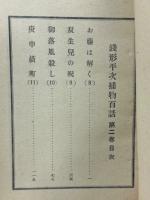 錢形平次捕物百話 第二卷目次
お藤は解く (8) 一
双生兒の呪 (9)
御落胤殺し (10)
庚申橫町 (11)